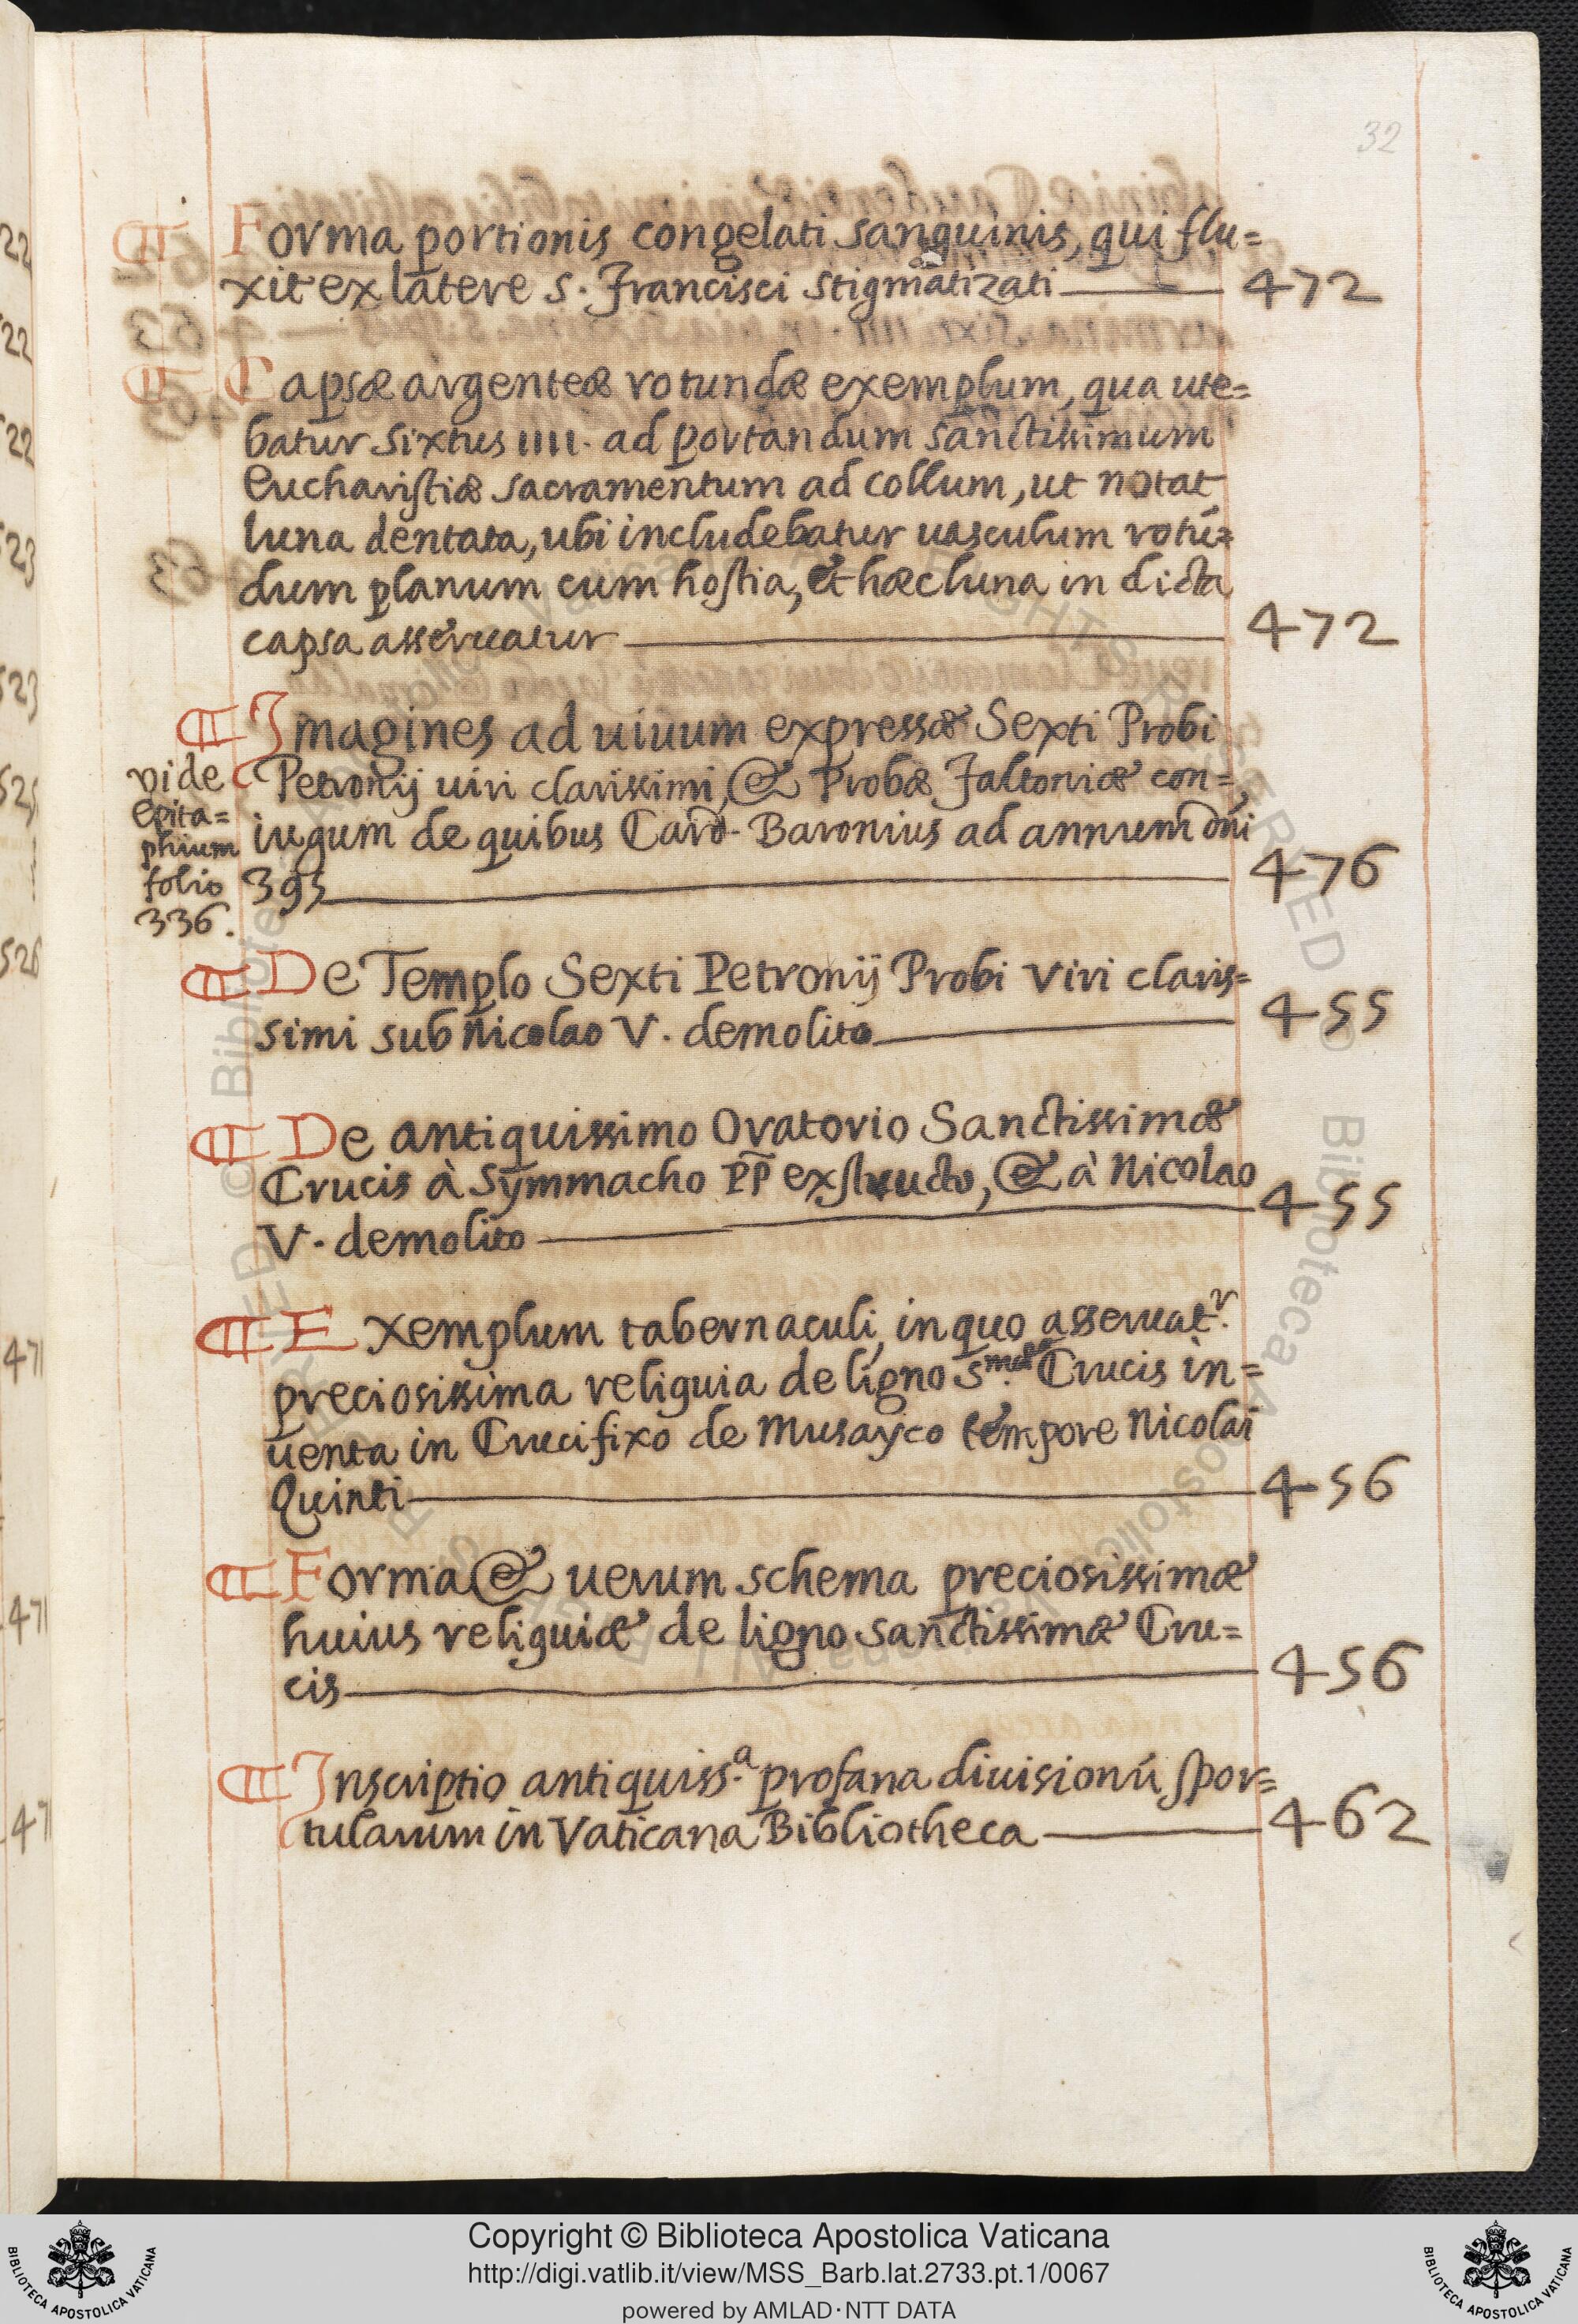 32
¶ Forma portionis congelati sanguinis, qui flu=
xit ex latere S. Francisci stigmatizati — 472
¶ Capsæ argenteæ rotundæ exemplum, qua ute=
batur Sixtus IIII. ad portandum sanctissimum
Eucharistiæ sacramentum ad collum, ut notat
luna dentata, ubi includebatur uasculum rotū=
dum planum cum hostia, et hæc luna in dicta
capsa asseruatur — 472
¶ Imagines ad uiuum expressæ Sexti Probi
Petronij uiri clarissimi, & Probæ Faltoniæ con=
iugum de quibus Card. Baronius ad annum dñi
395 — 476
vide
epita=
phium
folio
336.
¶ De Templo Sexti Petronij Probi Viri claris=
simi sub Nicolao V. demolito — 455
¶ De antiquissimo Oratorio Sanctissimæ
Crucis à Symmacho PP exstructo, & à Nicolao
V. demolito — 455
¶ Exemplum tabernaculi, in quo asseruat.r
preciosissima reliquia de ligno S.mæ Crucis in=
uenta in Crucifixo de Musayco tempore Nicolai
Quinti — 456
¶ Forma & uerum schema preciosissimæ
huius reliquiæ de ligno sanctissimæ Cru=
cis — 456
¶ Inscriptio antiquiss.a profana diuisionū spor=
tularum in Vaticana Bibliotheca — 462
Copyright © Biblioteca Apostolica Vaticana
http://digi.vatlib.it/view/MSS_Barb.lat.2733.pt.1/0067
powered by AMLAD·NTT DATA
BIBLIOTECA APOSTOLICA VATICANA
BIBLIOTECA APOSTOLICA VATICANA